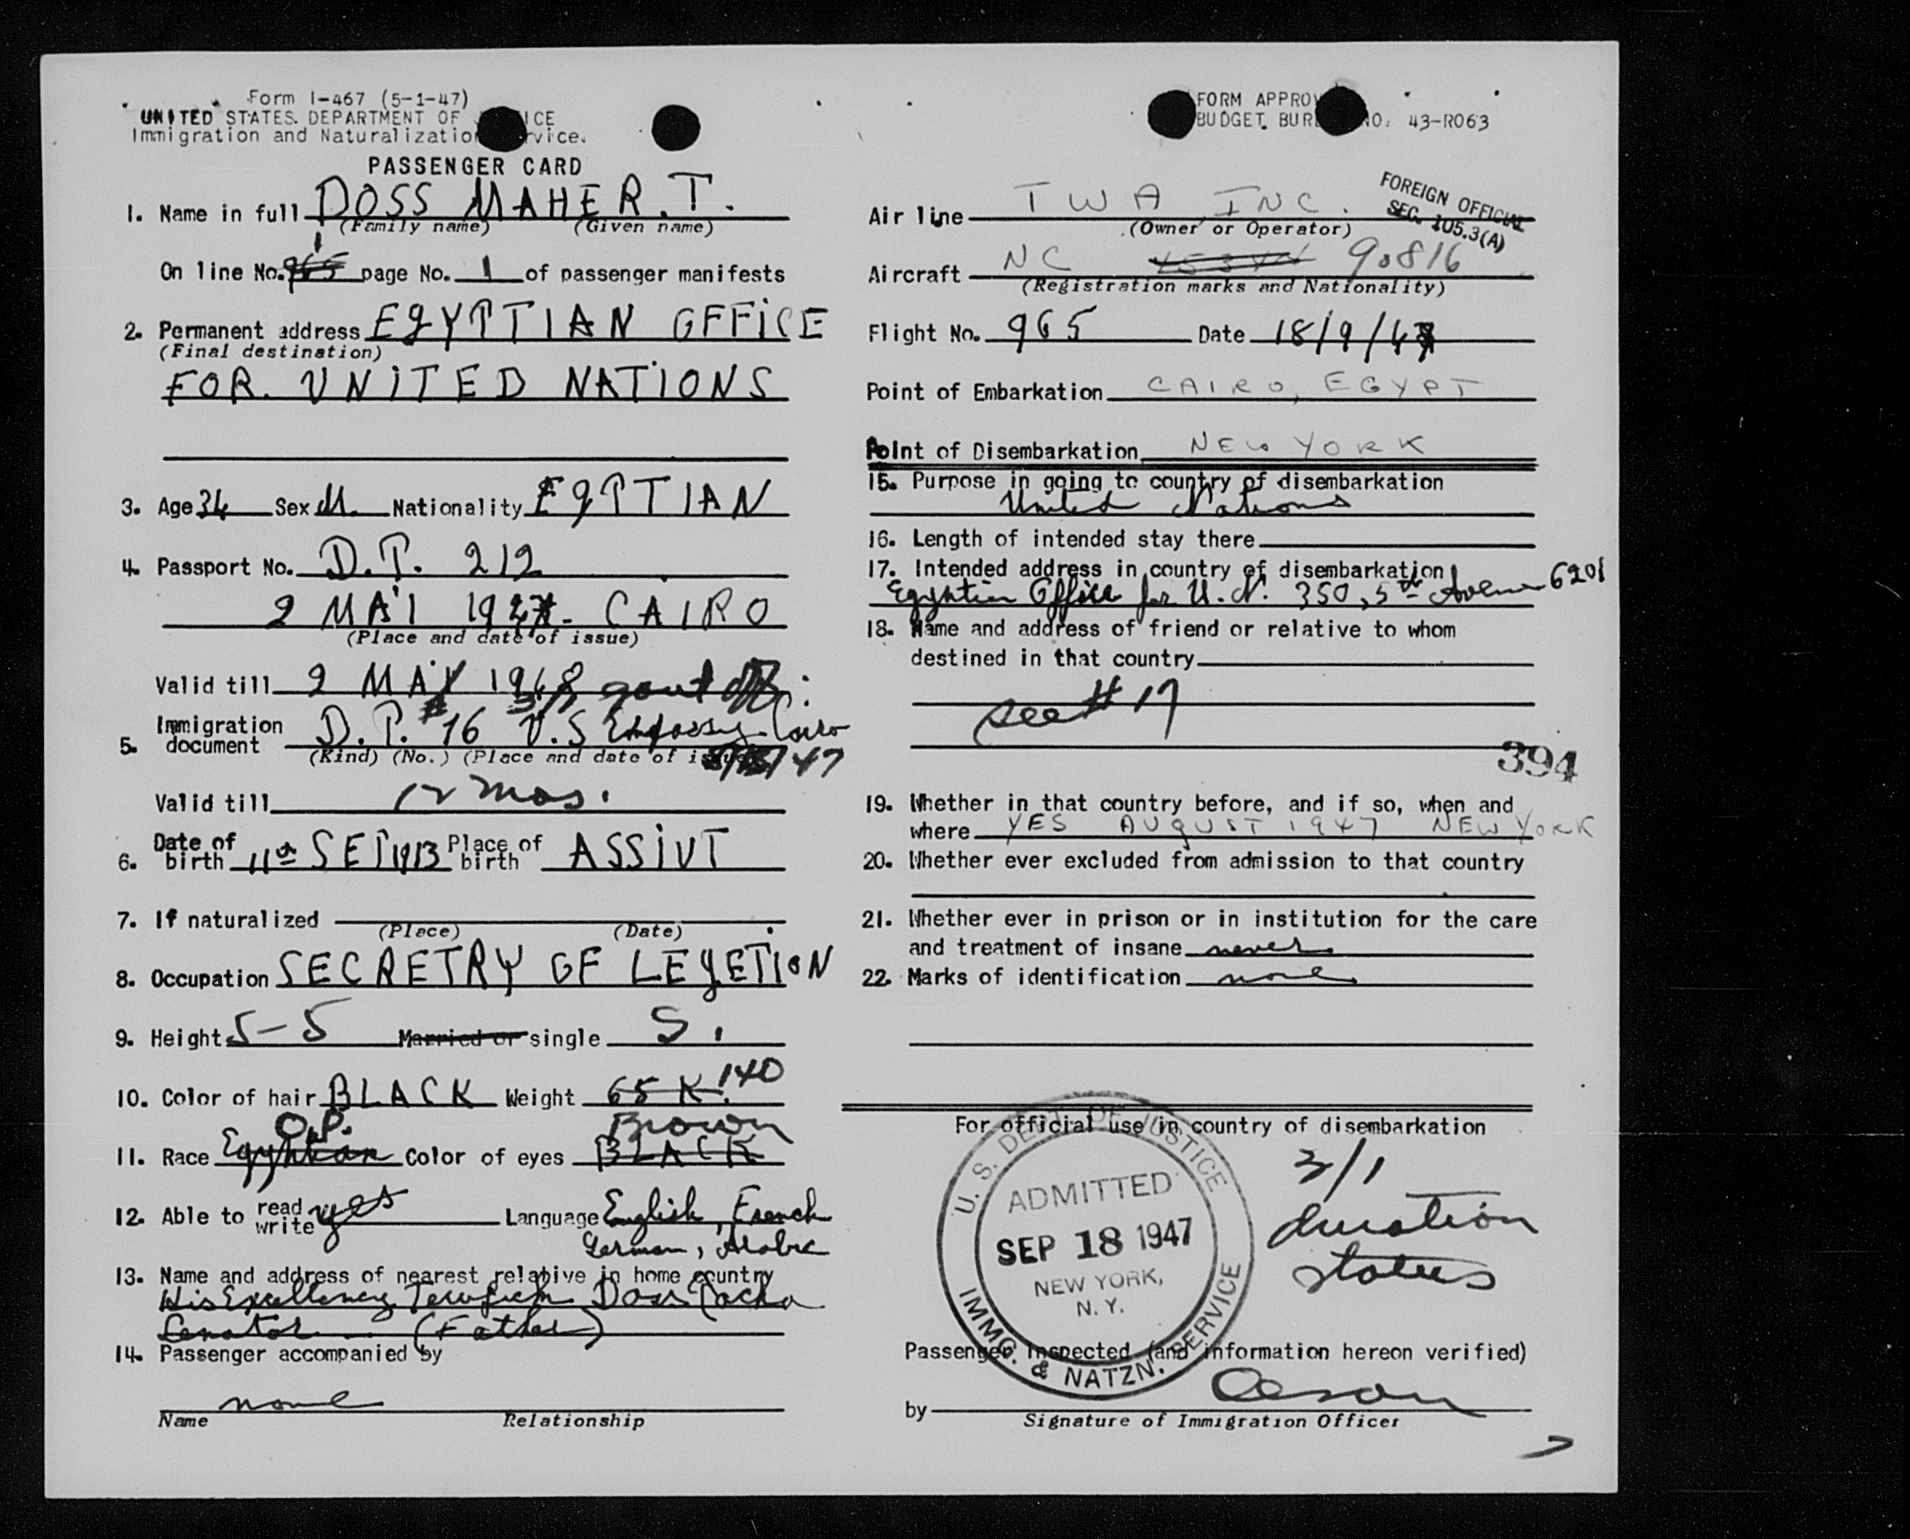 Form I-467 (5-1-47)
UNITED STATES DEPARTMENT OF
Immigration and Naturalization
PASSENGER CARD
1. Name in full DOSS MAHER. T.
(Family name) (Given name)
On line No. 1 page No. 1 of passenger manifests
2. Permanent address EGYPTIAN OFFICE
(Final destination)
FOR. UNITED NATIONS
3. Age 34 Sex M. Nationality EGPTIAN
4. Passport No. D.P. 212
2 MAI 1947 - CAIRO
(Place and date of issue)
Valid till 2 MAY 1948
5. Immigration document D.P. #16 U.S Embassy Cairo
(Kind) (No.) (Place and date of issue) 47
Valid till 12 mos.
6. Date of birth 11th SEP 1913 Place of birth ASSIUT
7. If naturalized
(Place) (Date)
8. Occupation SECRETRY OF LEGETION
9. Height 5-5 Married or single S.
10. Color of hair BLACK Weight 65 K. 140
O.P. Brown
11. Race Egyptian Color of eyes BLACK
12. Able to read write yes Language English, French
German, Arabic
13. Name and address of nearest relative in home country
His Excellency Tewfick Doss Pacha
Senator - (Father)
14. Passenger accompanied by
none
Name Relationship
FORM APPROV
BUDGET BUR NO. 43-R063
FOREIGN OFFICIAL
SEC. 105.3(A)
Air line TWA INC.
(Owner or Operator)
Aircraft NC 90816
(Registration marks and Nationality)
Flight No. 965 Date 18/9/47
Point of Embarkation CAIRO, EGYPT
Point of Disembarkation NEW YORK
15. Purpose in going to country of disembarkation
United Nations
16. Length of intended stay there
17. Intended address in country of disembarkation
Egyptian Office for U.N. 350, 5th Avenue 6201
18. Name and address of friend or relative to whom
destined in that country
see # 17
394
19. Whether in that country before, and if so, when and
where YES AUGUST 1947 NEW YORK
20. Whether ever excluded from admission to that country
21. Whether ever in prison or in institution for the care
and treatment of insane never
22. Marks of identification none
For official use in country of disembarkation
U. S. DEPT. OF JUSTICE
ADMITTED
SEP 18 1947
NEW YORK,
N. Y.
IMMG. & NATZN. SERVICE
3/1
duration
status
Passenger Inspected (and information hereon verified)
by
Signature of Immigration Officer